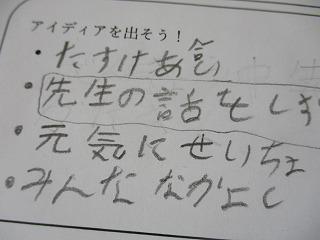 アイディアを出そう！
・たすけあい
・先生の話をしず
・元気にせいちょ
・みんな なかよし